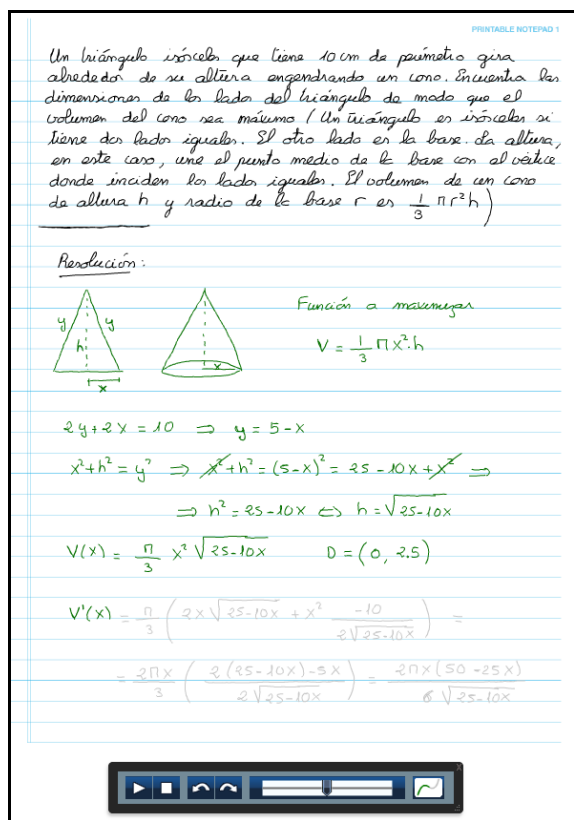 PRINTABLE NOTEPAD 1
Un triángulo isósceles que tiene 10 cm de perímetro gira
alrededor de su altura engendrando un cono. Encuentra las
dimensiones de los lados del triángulo de modo que el
volumen del cono sea máximo (Un triángulo es isósceles si
tiene dos lados iguales. El otro lado es la base. La altura,
en este caso, une el punto medio de la base con el vértice
donde inciden los lados iguales. El volumen de un cono
de altura h y radio de la base r es 1/3 π r² h)
Resolución:
Función a maximizar
y y
h
x
x
V = 1/3 π x² · h
2y + 2x = 10 ⇒ y = 5 - x
x² + h² = y² ⇒ x² + h² = (5 - x)² = 25 - 10x + x² ⇒
⇒ h² = 25 - 10x ⇔ h = √(25 - 10x)
V(x) = π/3 x² √(25 - 10x) D = (0, 2.5)
V'(x) = π/3 (2x √(25 - 10x) + x² -10/(2√(25 - 10x))) =
= 2πx/3 (2(25 - 10x) - 5x / 2√(25 - 10x)) = 2πx(50 - 25x) / 6√(25 - 10x)